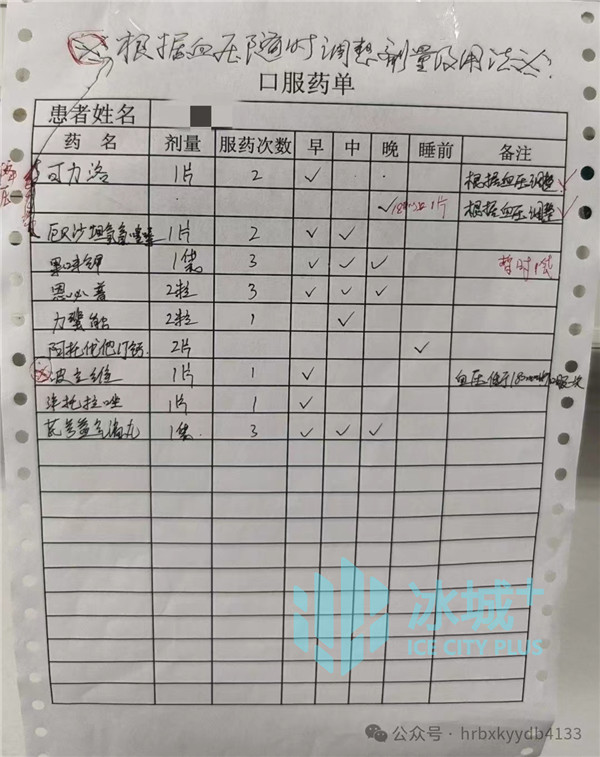 根据血压随时调整剂量及用法
口服药单
患者姓名
药 名 剂量 服药次数 早 中 晚 睡前 备注
降压
可力洛 1片 2 ✓ 根据血压调整 ✓
✓ 1片 根据血压调整 ✓
厄贝沙坦氢氯噻嗪 1片 2 ✓ ✓
果味钾 1袋 3 ✓ ✓ ✓ 暂时1袋
恩必普 2粒 3 ✓ ✓ ✓
力蜚能 2粒 1 ✓
阿托伐他汀钙 2片 ✓
波立维 1片 1 ✓ 血压低于180mmHg口服一次
泮托拉唑 1片 1 ✓
芪蓉益气 1袋 3 ✓ ✓ ✓
冰城+
ICE CITY PLUS
公众号 · hrbxkyydb4133